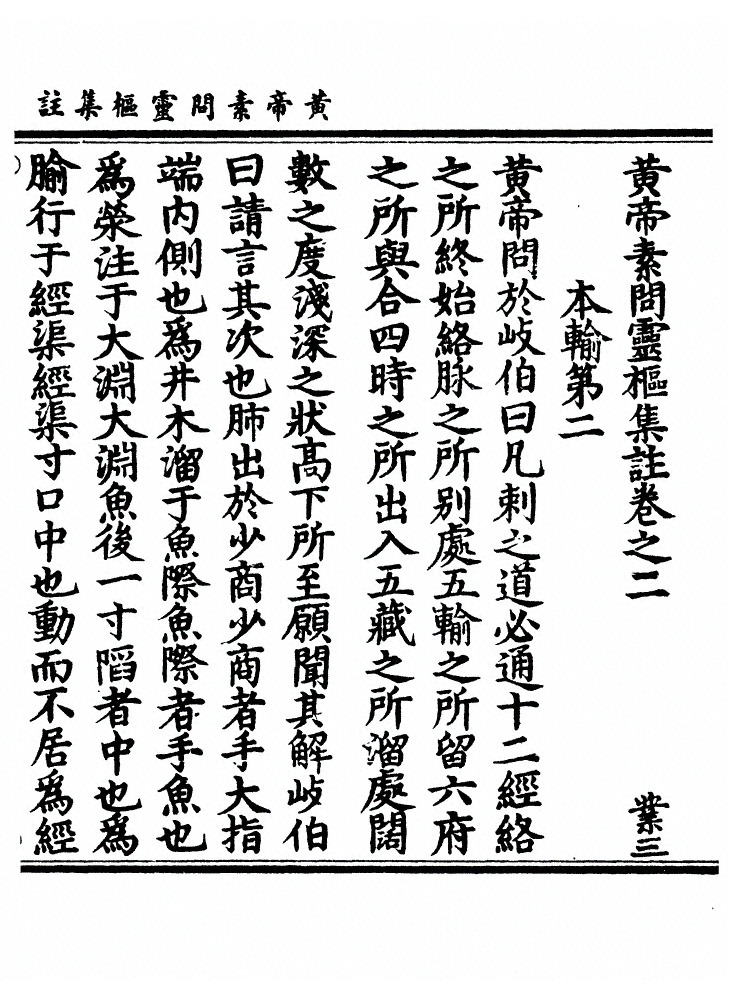 黃帝素問靈樞集註
黃帝素問靈樞集註卷之二
業三
本輸第二
黃帝問於岐伯曰凡刺之道必通十二經絡
之所終始絡脉之所別處五輸之所留六府
之所與合四時之所出入五藏之所溜處闊
數之度淺深之狀高下所至願聞其解岐伯
曰請言其次也肺出於少商少商者手大指
端內側也爲井木溜于魚際魚際者手魚也
爲滎注于大淵大淵魚後一寸陷者中也爲
腧行于經渠經渠寸口中也動而不居爲經